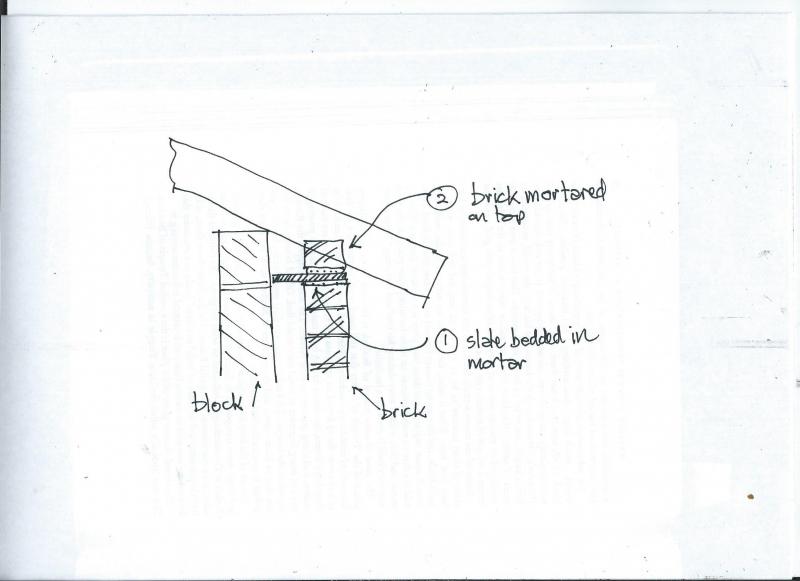 ② brick mortared
on top
① slate bedded in
mortar
block
brick